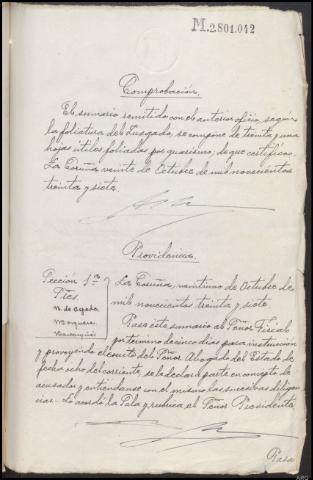 M.2.801.012
Comprobación.
El sumario remitido con el anterior oficio, según
la foliatura del Juzgado, se compone de treinta y una
hojas útiles foliadas por guarismo, de que certifico.
La Coruña veinte de Octubre de mil novecientos
treinta y siete.
Providencia
Sección 1ª
Sres.
La Coruña, veintiuno de Octubre de
mil novecientos treinta y siete
Pase este sumario al Señor Fiscal
por término de cinco días para instrucción
y proveyendo el escrito del Señor Abogado del Estado de
fecha ocho del corriente, se la declara parte en concepto de
acusador y entiéndanse con el mismo las sucesivas diligen
cias.- Lo acordó la Sala y rubrica el Señor Presidente
Pasa